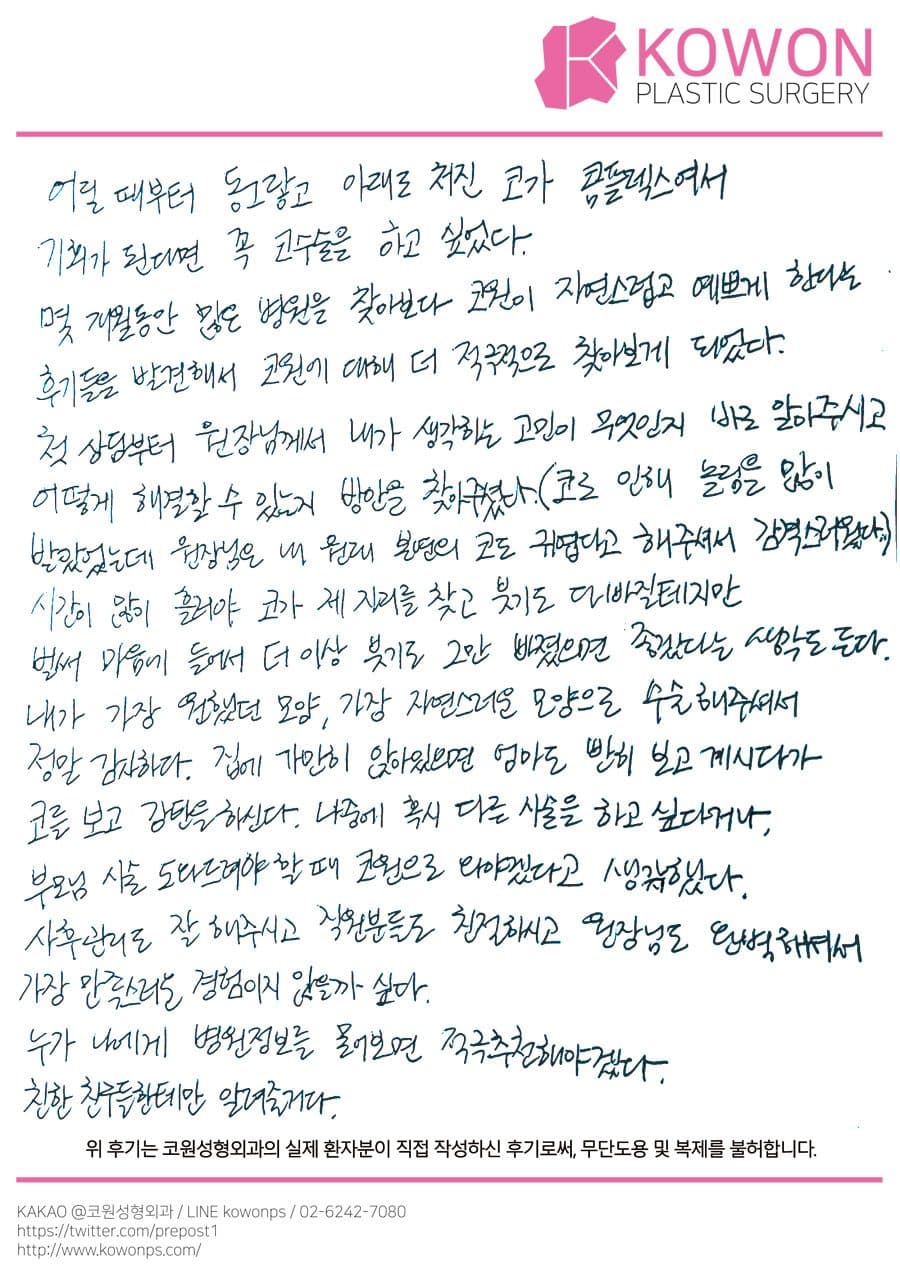 KOWON
PLASTIC SURGERY
어릴 때부터 동그랗고 아래로 처진 코가 콤플렉스여서
기회가 된다면 꼭 코수술을 하고 싶었다.
몇 개월동안 많은 병원을 찾아보다 코원이 자연스럽고 예쁘게 한다는
후기들을 발견해서 코원에 대해 더 적극적으로 찾아보게 되었다.
첫 상담부터 원장님께서 내가 생각하는 고민이 무엇인지 바로 알아주시고
어떻게 해결할 수 있는지 방안을 찾아주셨다.(코로 인해 놀림을 많이
받았었는데 원장님은 내 원래 본연의 코도 귀엽다고 해주셔서 감격스러웠다.)
시간이 많이 흘러야 코가 제 자리를 찾고 붓기도 다 빠질테지만
벌써 마음에 들어서 더 이상 붓기도 그만 빠졌으면 좋겠다는 생각도 든다.
내가 가장 원했던 모양, 가장 자연스러운 모양으로 수술해주셔서
정말 감사하다. 집에 가만히 앉아있으면 엄마도 빤히 보고 계시다가
코를 보고 감탄을 하신다. 나중에 혹시 다른 시술을 하고 싶다거나,
부모님 시술 도와드려야 할 때 코원으로 와야겠다고 생각했다.
사후관리도 잘 해주시고 직원분들도 친절하시고 원장님도 완벽하셔서
가장 만족스러운 경험이지 않을까 싶다.
누가 나에게 병원정보를 물어보면 적극추천해야겠다.
친한 친구들한테만 알려줄거다.
위 후기는 코원성형외과의 실제 환자분이 직접 작성하신 후기로써, 무단도용 및 복제를 불허합니다.
KAKAO @코원성형외과 / LINE kowonps / 02-6242-7080
https://twitter.com/prepost1
http://www.kowonps.com/